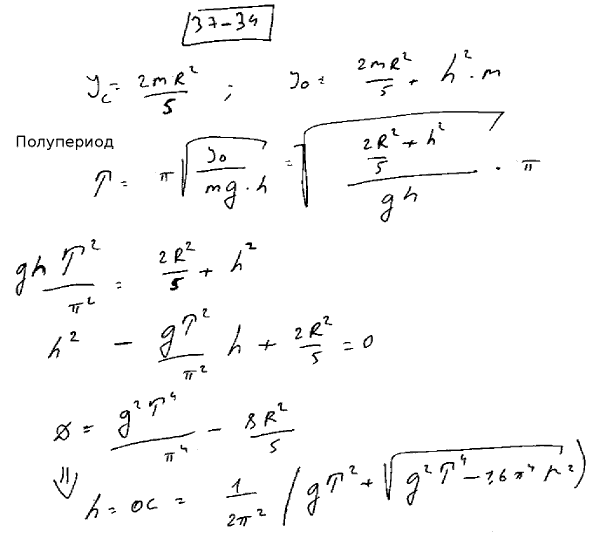 37-34
J_c = 2mR²/5 ; J_0 = 2mR²/5 + h²·m
Полупериод
T = π√(J_0/(mg·h)) = √((2R²/5 + h²)/(gh)) · π
ghT²/π² = 2R²/5 + h²
h² - gT²/π² h + 2R²/5 = 0
D = g²T⁴/π⁴ - 8R²/5
⇓
h = OC = 1/(2π²) (gT² + √(g²T⁴ - 1,6π⁴R²))